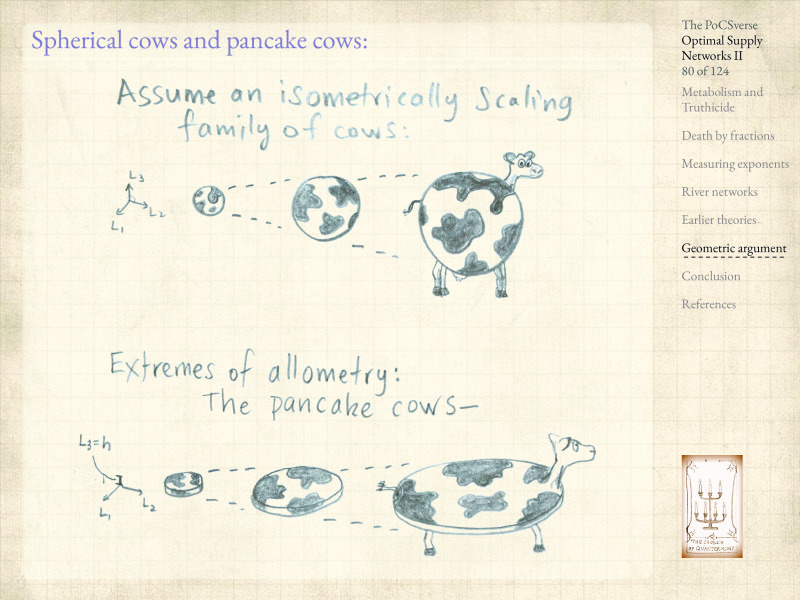 Spherical cows and pancake cows:
Assume an isometrically scaling
family of cows:
L3
L1
L2
Extremes of allometry:
The pancake cows—
L3=h
L1
L2
The PoCSverse
Optimal Supply
Networks II
80 of 124
Metabolism and
Truthicide
Death by fractions
Measuring exponents
River networks
Earlier theories
Geometric argument
Conclusion
References
THE CHURCH
OF QUARTEROLOGY